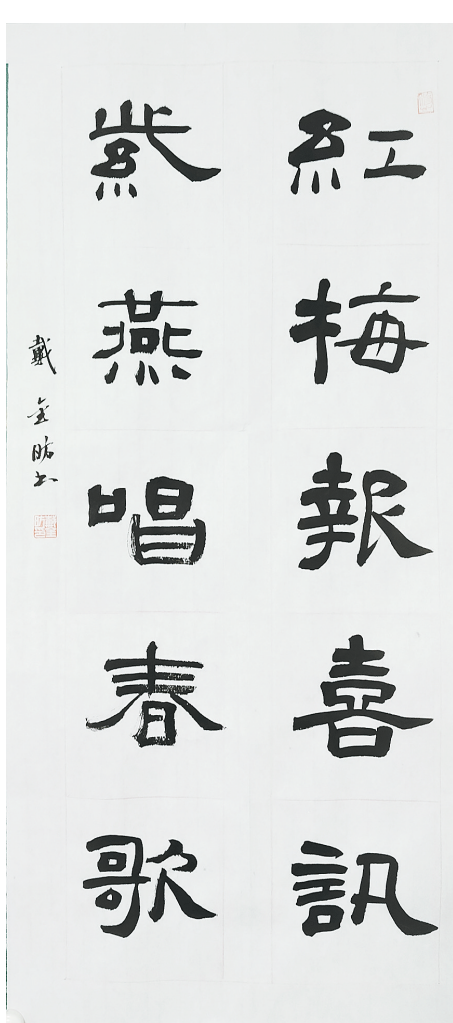 紅梅報喜訊
紫燕唱春歌
戴金昉书